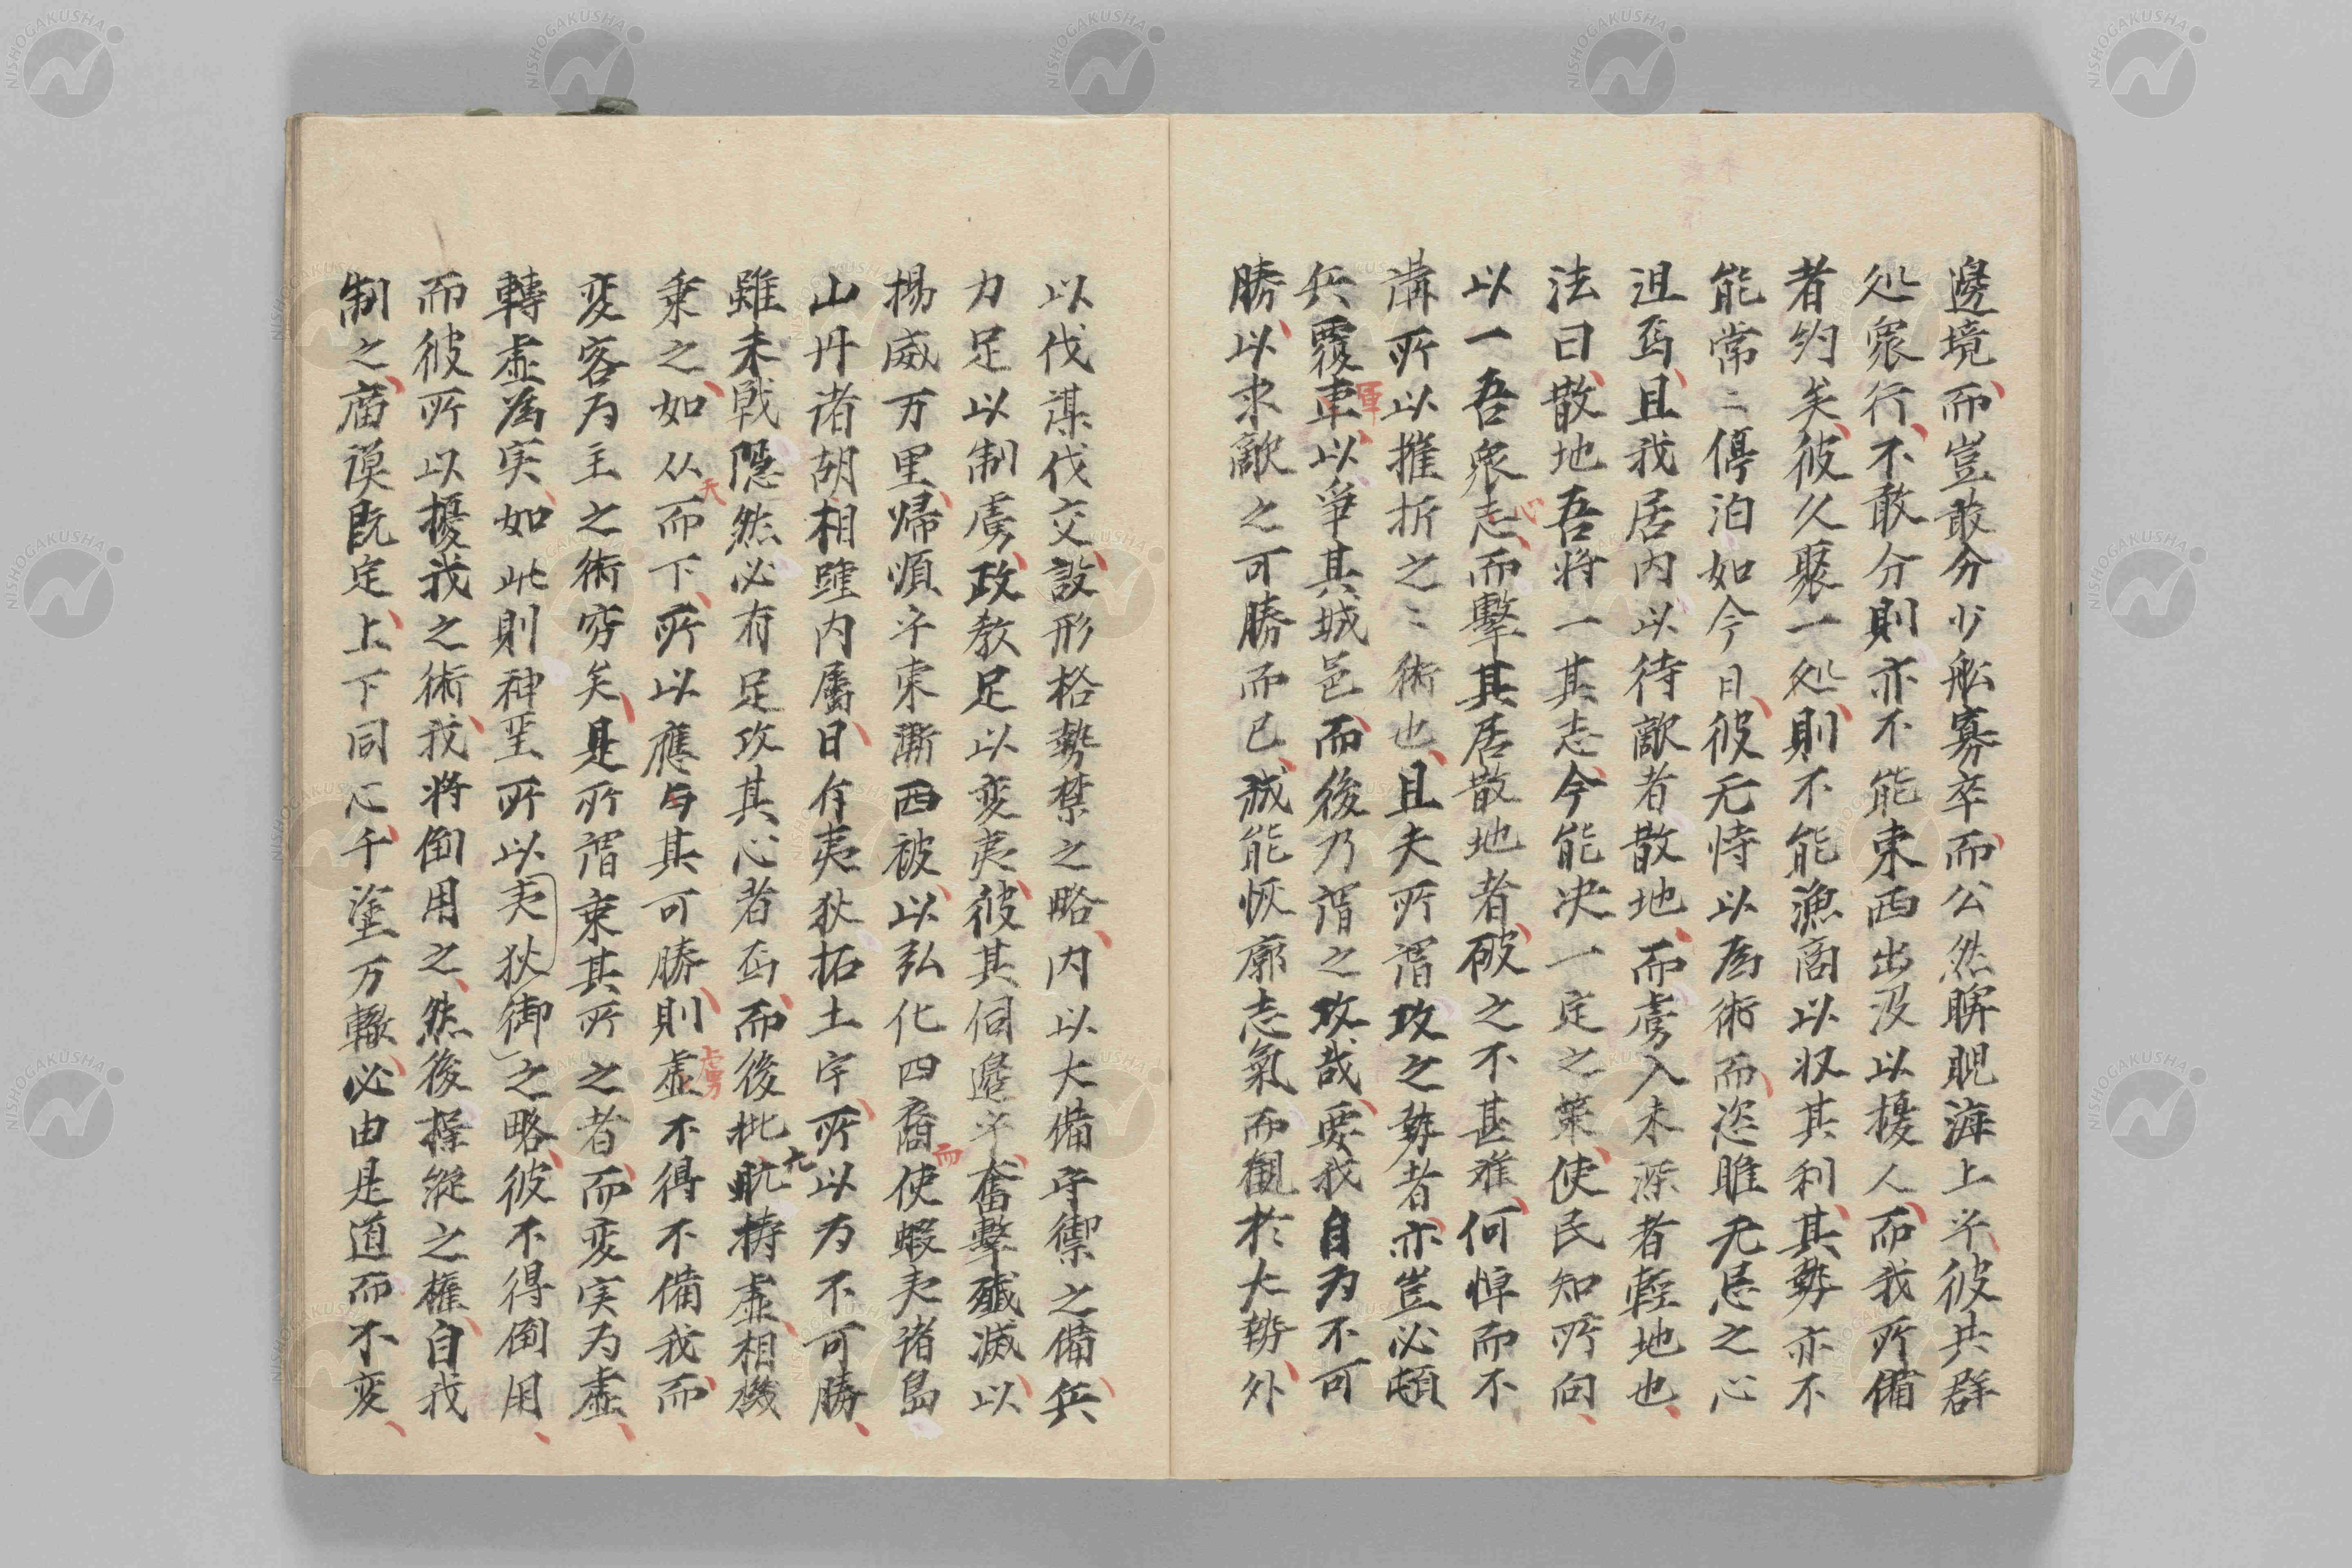 邊境而豈敢分少舩寡卒而公然睥睨海上乎彼共群
処衆行不敢分則亦不能東西出沒以擾人而我所備
者約矣彼久聚一処則不能漁商以収其利其勢亦不
能常々停泊如今日彼无恃以為術而恣雎无忌之心
沮焉且我居内以待敵者散地而虜入未深者輕地也
法曰散地吾将一其志今能决一定之策使民知所向
以一吾衆志心而擊其居散地者破之不甚难何憚而不
講所以摧折之之術也且夫所謂攻之勢者亦豈必頓
兵覆車軍以爭其城邑而後乃謂之攻哉要我自为不可
勝以求敵之可勝而已誠能恢廓志氣而觀於大勢外
以伐謀伐交設形格勢禁之略内以大備守禦之備兵
力足以制虜政教足以変夷彼其伺邊乎奮擊殲滅以
揚威万里帰順乎東漸西被以弘化四裔而使蝦夷諸島
山丹諸胡相踵内属日斥夷狄拓土宇所以为不可勝
雖未戦隱然必有足攻其心者焉而後批亢擣虚相機
乗之如从天而下所以應与其可勝則虚虜不得不備我而
変客为主之術窮矣是所謂乗其所之者而変実为虚
轉虚為実如此則神聖所以夷狄御之略彼不得倒用
而彼所以擾我之術我将倒用之然後操縱之權自我
制之廟謨既定上下同心千塗万轍必由是道而不変
NISHOGAKUSHA